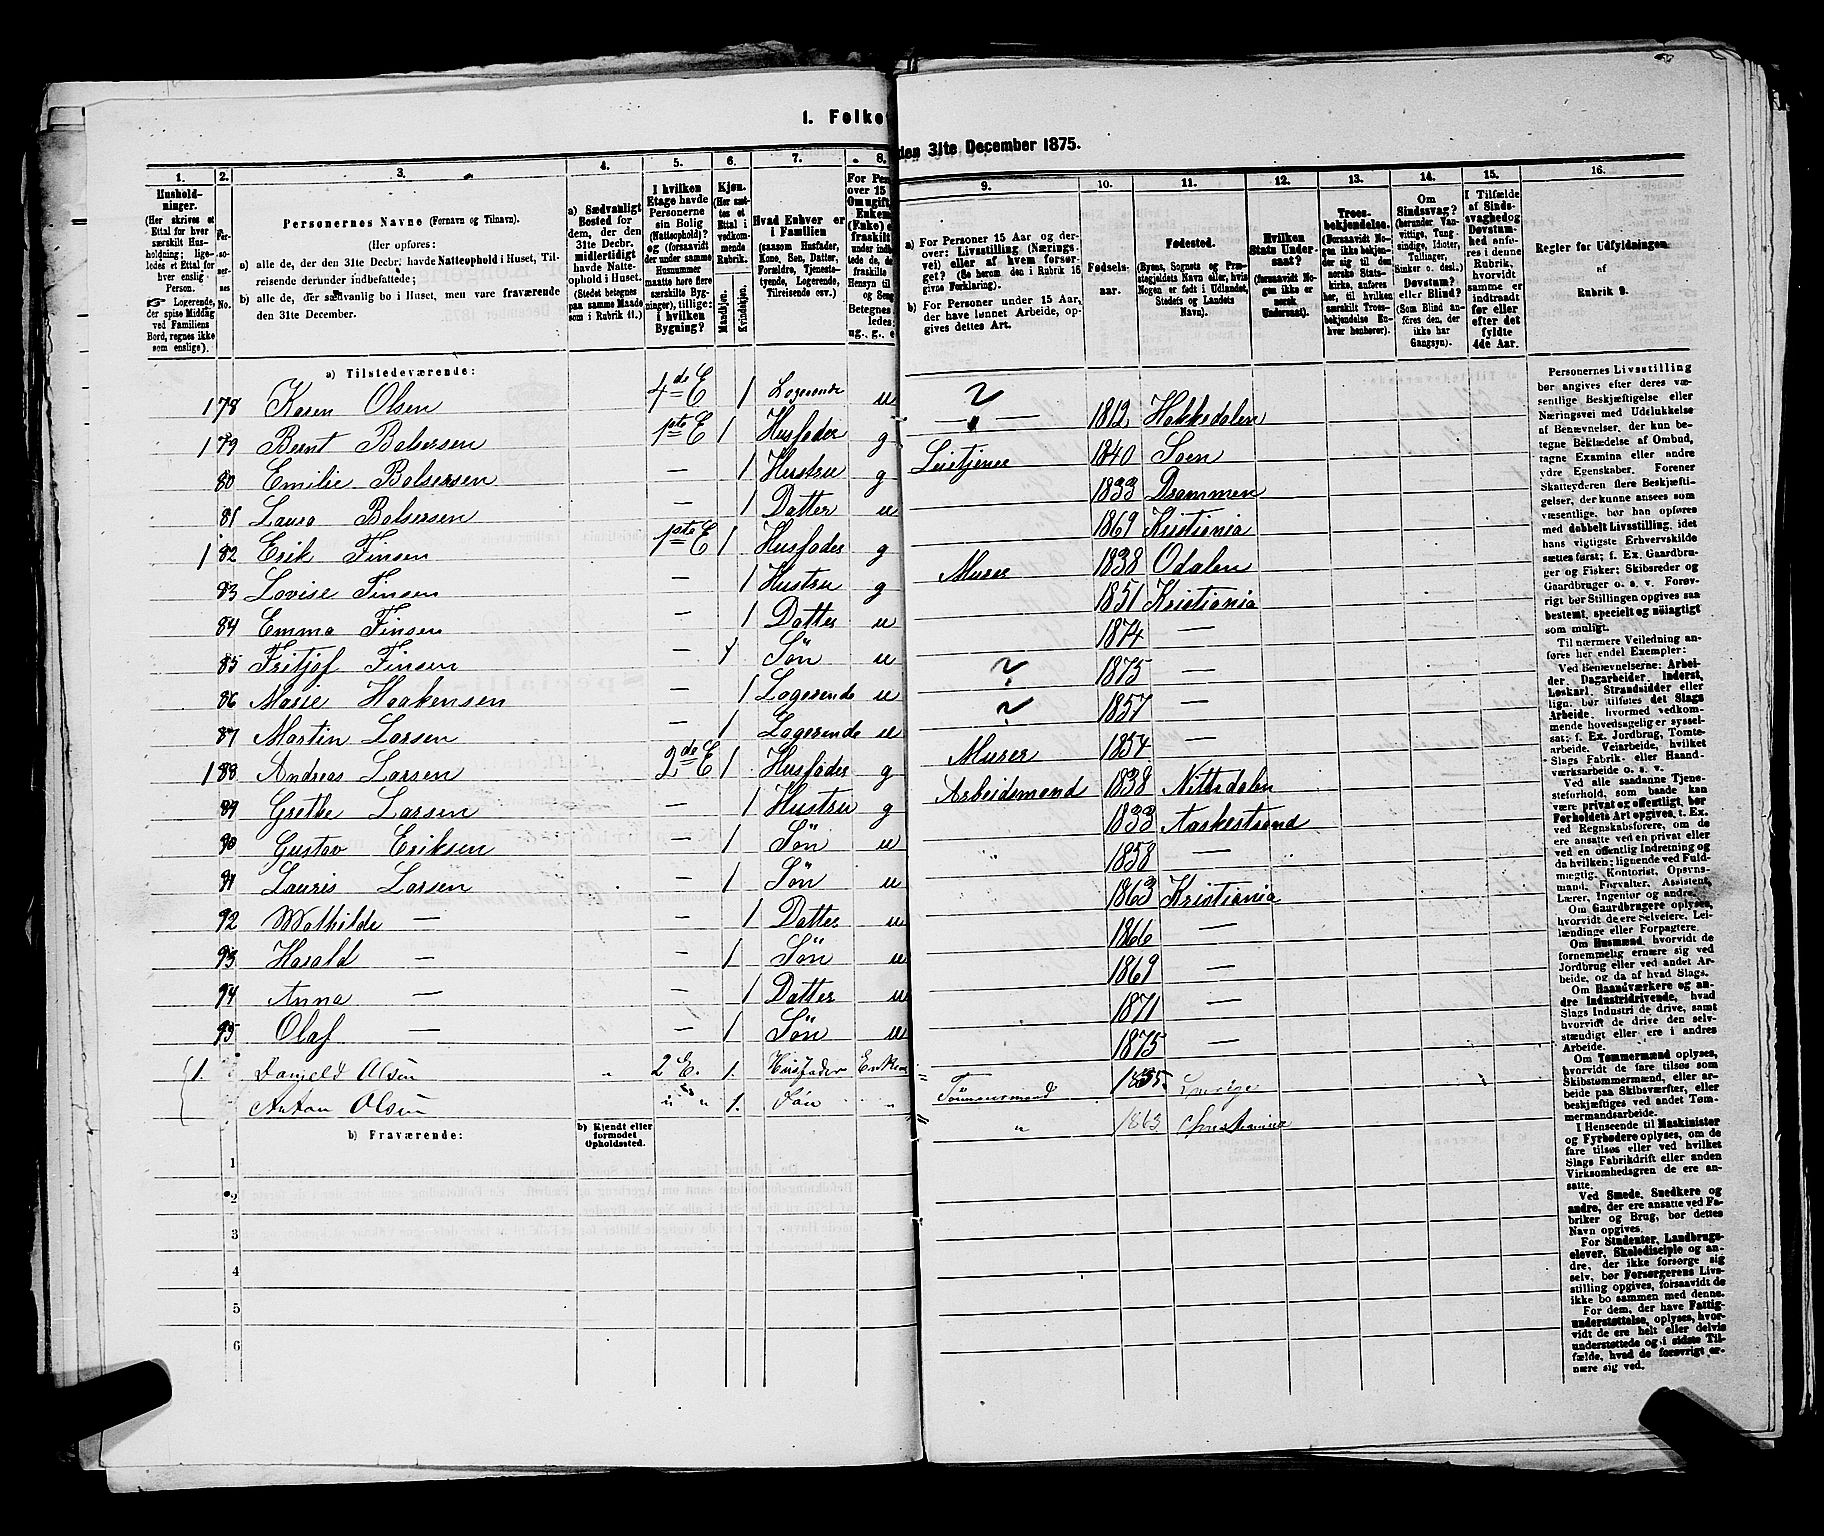 1. Folke
den 31te December 1875.
1. 2. 3. 4. 5. 6. 7. 8. 9. 10. 11. 12. 13. 14. 15. 16.
Hushold-
ninger.
(Her skrives et
Ettal for hver
særskilt Hus-
holdning; lige-
ledes et Ettal for
hver enslig
Person.
☞ Logerende,
der spise Middag
ved Familiens
Bord, regnes ikke
som enslige).
Per-
so-
ner-
nes
No.
Personernes Navne (Fornavn og Tilnavn).
(Her opføres:
a) alle de, der den 31te Decbr. havde Natteophold i Huset, Til-
reisende derunder indbefattede;
b) alle de, der sædvanlig bo i Huset, men vare fraværende
den 31te December.
a) Sædvanligt
Bosted for
dem, der den
31te Decbr.
midlertidigt
havde Natte-
ophold i Huset.
(Stedet betegnes
paa samme Maade
som i Rubrik 11.)
I hvilken
Etage havde
Personerne
sin Bolig
(Natteophold)?
og (forsaavidt
der under samme
Husnummer
maatte høre flere
særskilte Byg-
ninger), tillige:
I hvilken
Bygning?
Kjøn.
(Her sæt-
tes et
Ettal i
vedkom-
mende
Rubrik.
Mandkjøn.
Kvindekjøn.
Hvad Enhver er
i Familien
(saasom Husfader,
Kone, Søn, Datter,
Forældre, Tjeneste-
tyende, Logerende,
Tilreisende osv.)
For Pers
over 15
Om ugift,
Enkem
(Enke) e
fraskilt
under indbe
tede de,
fraskilte
Hensyn til
og Seng
Betegnes
ledes:
ug., g., e
a) For Personer 15 Aar og der-
over: Livsstilling (Nærings-
vei) eller af hvem forsør-
get? (Se herom den i Rubrik 16
givne Forklaring).
b) For Personer under 15 Aar,
der have lønnet Arbeide, op-
gives dettes Art.
Fødsels-
aar.
Fødested.
(Byens, Sognets og Præ-
stegjeldets Navn eller, hvis
Nogen er født i Udlandet,
Stedets og Landets
Navn).
Hvilken
Stats Under-
saat?
(forsaavidt No-
gen ikke er
norsk
Undersaat).
Troes-
bekjendelse.
(Forsaavidt No-
gen ikke bekjen-
der sig til den
norske Stats-
kirke, anføres
her, til hvilken
særskilt Troes-
bekjendelse En-
hver henhører).
Om
Sindssvag?
(herunder Van-
vittige, Tung-
sindige, Idioter,
Tullinger,
Sinker o. desl.)
Døvstum?
eller Blind?
(Som Blind an-
føres den, der
ikke har
Gangsyn).
I Tilfælde
af Sinds-
svaghed og
Døvstum-
hed anfø-
res i denne
Rubrik,
hvorvidt
samme er
indtraadt
før eller
efter det
fyldte
4de Aar.
Regler for Udfyldningen
af
Rubrik 9.
a) Tilstedeværende:
1 78 Karen Olsen 4de E 1 Logerende u ? — 1812 Hakkedalen
1 79 Bernt Balsersen 1ste E 1 Husfader g Leietjener 1840 Soen
80 Emilie Balsersen — 1 Hustru g 1833 Drammen
81 Laura Balsersen — 1 Datter u 1869 Kristiania
1 82 Erik Finsen 1ste E 1 Husfader g Murer 1838 Odalen
83 Lovise Finsen — 1 Hustru g 1851 Kristiania
84 Emma Finsen — 1 Datter u 1874 —
85 Fritjof Finsen — 1 Søn u ? 1875 —
86 Marie Haakensen — 1 Logerende u ? 1857 —
87 Martin Larsen — 1 Logerende u Murer 1854 —
1 88 Andreas Larsen 2de E 1 Husfader g Arbeidsmand 1838 Nittedalen
89 Grethe Larsen — 1 Hustru g 1833 Aaskestrand
90 Gustav Eriksen — 1 Søn u " 1858 —
91 Lauris Larsen — 1 Søn u 1863 Kristiania
92 Mathilde — — 1 Datter u 1866 —
93 Harald — — 1 Søn u 1869 —
94 Anna — — 1 Datter u 1871 —
95 Olaf — — 1 Søn u 1875 —
1. Danjeld Olsen " 2 E. 1. Husfader Enkem " Tømmermand 1835. Sverige
Anton Olsen " " 1. Søn " " 1863 Christiania
b) Fraværende:
b) Kjendt eller
formodet
Opholdssted.
1
2
3
4
5
6
Personernes Livsstilling
bør angives efter deres væ-
sentlige Beskjæftigelse eller
Næringsvei med Udelukkelse
af Benævnelser, der kun be-
tegne Beklædelse af Ombud,
tagne Examina eller andre
ydre Egenskaber. Forener
Skatteyderen flere Beskjæfti-
gelser, der kunne ansees som
væsentlige, bør han opføres
med dobbelt Livsstilling, idet
hans vigtigste Erhvervskilde
sættes først; f. Ex. Gaardbru-
ger og Fisker; Skibsreder og
Gaardbruger o. s. v. Forøv-
rigt bør Stillingen opgives saa
bestemt, specielt og nøiagtigt
som muligt.
Til nærmere Veiledning an-
føres her endel Exempler:
Ved Benævnelserne: Arbei-
der, Dagarbeider, Inderst,
Løskarl, Strandsidder eller
lign. bør tilføies det Slags
Arbeide, hvormed vedkom-
mende hovedsagelig er syssel-
sat; f. Ex. Jordbrug, Tomte-
arbeide, Veiarbeide, hvilket
Slags Fabrik- eller Haand-
værksarbeide o. s. v.
Ved alle saadanne Tjene-
steforhold, som baade kan
være privat og offentligt, bør
Forholdets Art opgives, t. Ex.
ved Regnskabsførere, om de
ere ansatte ved en privat eller
ved en offentlig Indretning og
da hvilken; lignende ved Fuld-
mægtig, Kontorist, Opsyns-
mand, Forvalter, Assistent,
Lærer, Ingeniør og andre.
Om Gaardbrugere oplyses,
hvorvidt de ere Selveiere, Lei-
lændinge eller Forpagtere.
Om Husmænd, hvorvidt de
fornemmelig ernære sig ved
Jordbrug eller ved andet Ar-
beide, og da af hvad Slags.
Om Haandværkere og an-
dre Industridrivende, hvad
Slags Industri de drive, samt
hvorvidt de drive den selv-
stændigt eller ere i andres
Arbeide.
Om Tømmermænd oplyses,
hvorvidt de fare tilsøs som
Skibstømmermænd, eller ar-
beide paa Skibsværfter, eller
beskjæftiges ved andet Tøm-
mermandsarbeide.
I Henseende til Maskinister
og Fyrbødere oplyses, om de
fare tilsøs eller ved hvilket
Slags Fabrikdrift eller anden
Virksomhedsgren de ere an-
satte.
Ved Smede, Snedkere og
andre, der ere ansatte ved Fa-
briker og Brug, bør dettes
Navn opgives.
For Studenter, Landbrugs-
elever, Skoledisciple og an-
dre, der ikke forsørge sig
selv, bør Forsørgerens Livs-
stilling opgives, forsaavidt de
ikke bo sammen med denne.
For dem, der have Fattig-
understøttelse, oplyses, hvor-
vidt de ere helt eller delvis
understøttede og i sidste Til-
fælde, hvad de forøvrigt er-
nære sig ved.